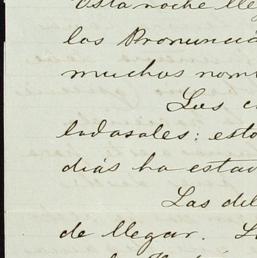 Esta noche lle
los Pronuncia
muchos nom
Las c
ladasales: esto
dias ha estad
Las dil
de llegar. L